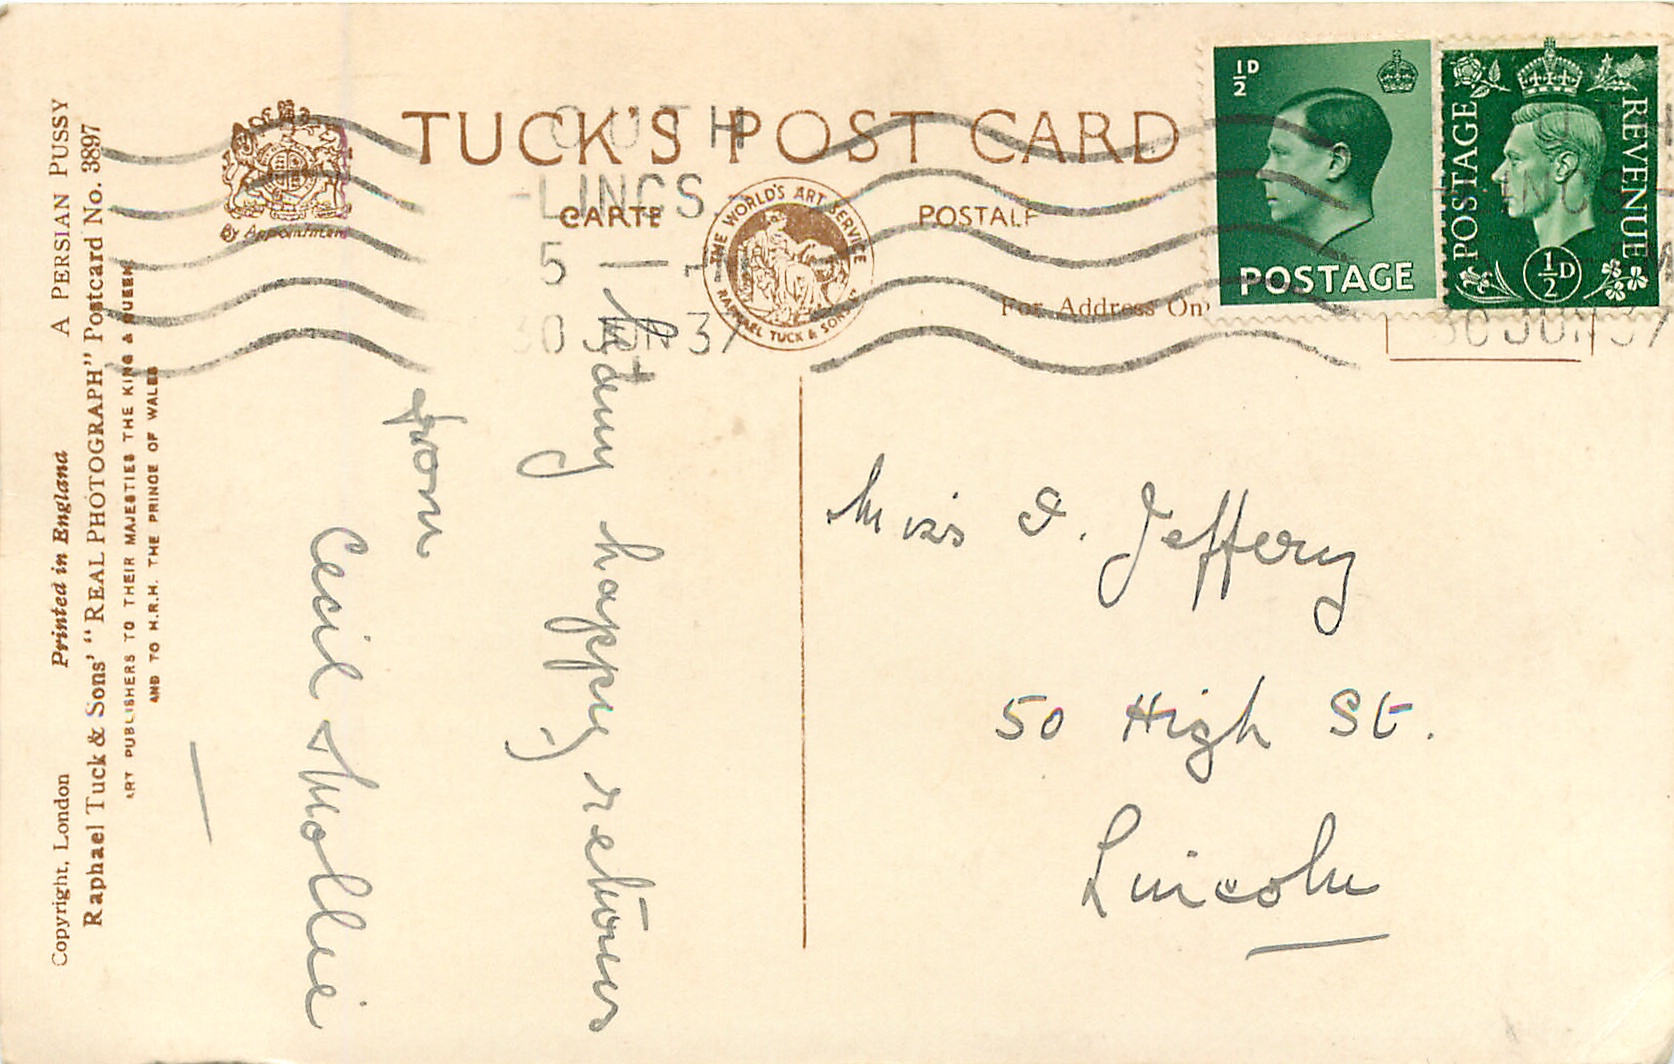 TUCK'S POST CARD
CARTE POSTALE
By Appointment
THE WORLD'S ART SERVICE
RAPHAEL TUCK & SONS
For Address On
½D
POSTAGE
POSTAGE
REVENUE
½D
OUTH
-LINCS.
5 -
30 JUN 37
INCS
30 JUN 37
A PERSIAN PUSSY
Copyright, London Printed in England
Raphael Tuck & Sons' "REAL PHOTOGRAPH" Postcard No. 3897
ART PUBLISHERS TO THEIR MAJESTIES THE KING & QUEEN
AND TO H.R.H. THE PRINCE OF WALES
Many happy returns
from
Cecil & Mollie
Miss I. Jeffery
50 High St.
Lincoln